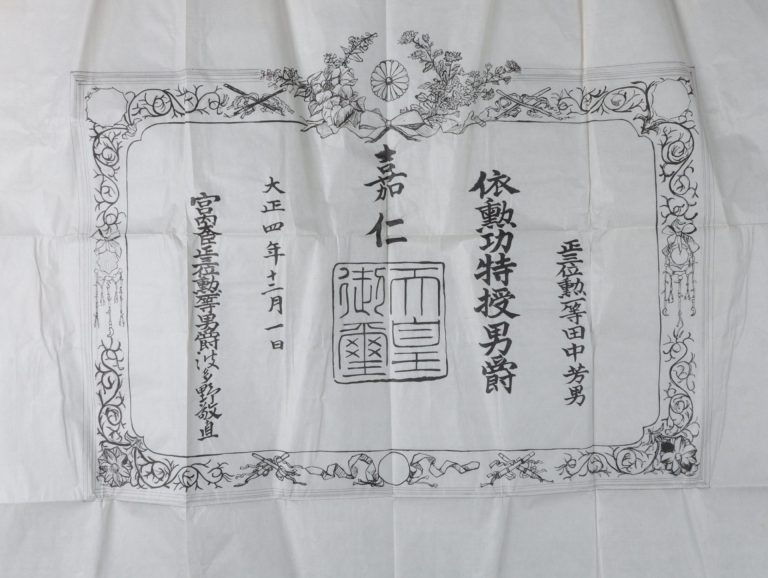 正三位勲一等田中芳男
依勲功特授男爵
嘉仁
天皇
御璽
大正四年十二月一日
宮内大臣正三位勲一等男爵波多野敬直